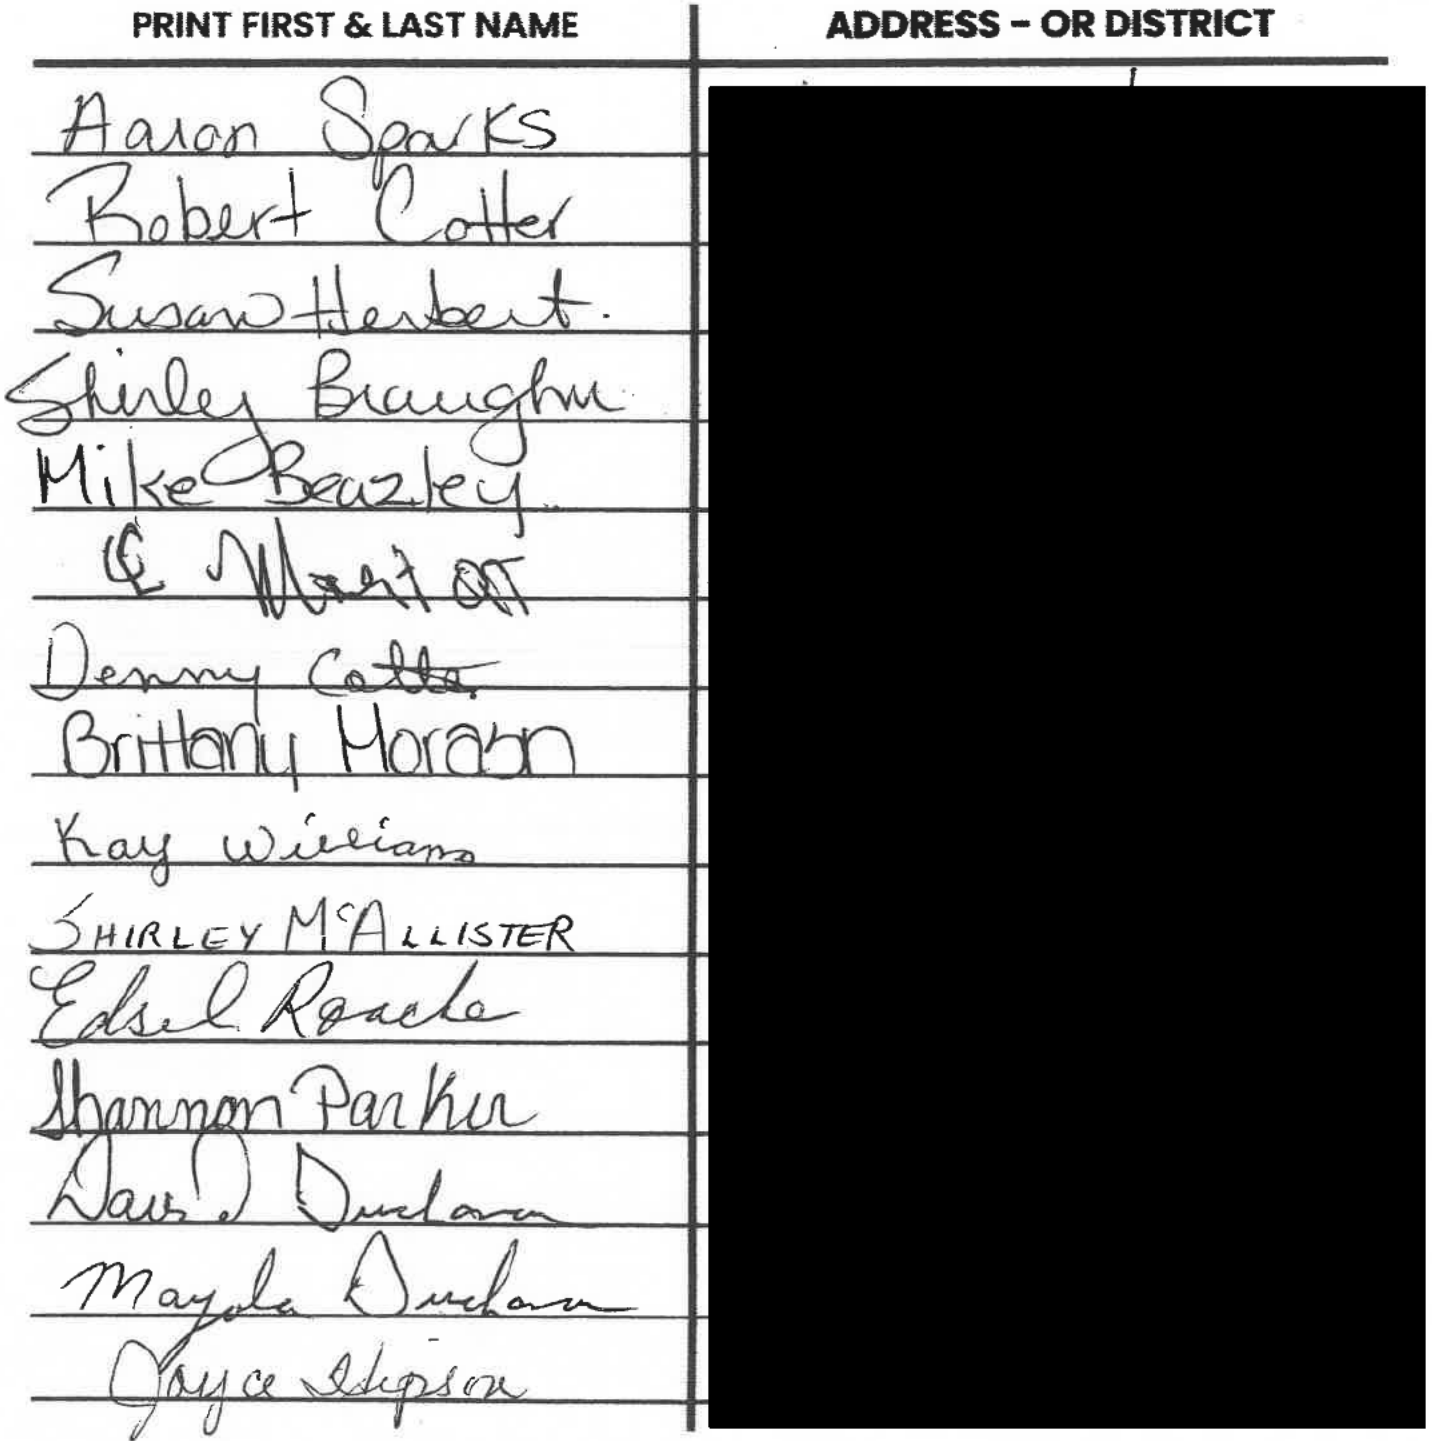 PRINT FIRST & LAST NAME ADDRESS – OR DISTRICT
Aaron Sparks
Robert Cotter
Susan Herbert.
Shirley Braugher
Mike Beazley
Denny
Brittany
Kay Williams
SHIRLEY McALLISTER
Edsel Roache
Shannon Parker
David
Mayola
Joyce